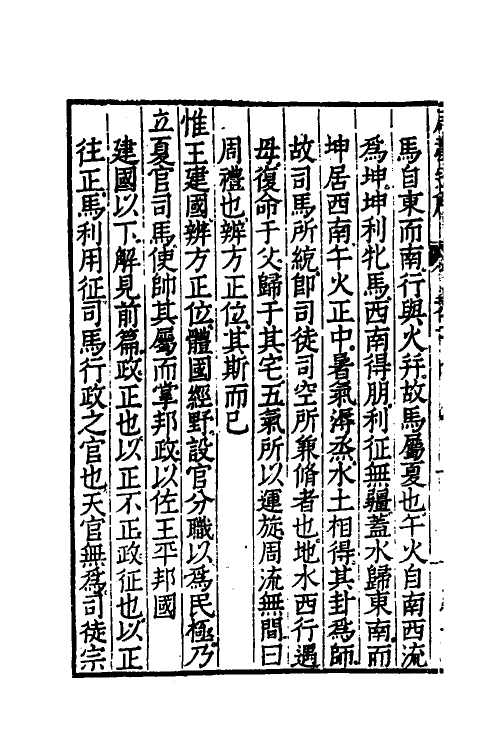 馬自東而南行與火幷故馬屬夏也午火自南西流
爲坤坤利牝馬西南得朋利征無疆蓋水歸東南而
坤居西南午火正中暑氣溽烝水土相得其卦爲師
故司馬所統卽司徒司空所兼脩者也地水西行遇
母復命于父歸于其宅五氣所以運旋周流無間曰
周禮也辨方正位其斯而已
惟王建國辨方正位體國經野設官分職以爲民極乃
立夏官司馬使帥其屬而掌邦政以佐王平邦國
建國以下解見前篇政正也以正不正政征也以正
往正馬利用征司馬行政之官也天官無爲司徒宗